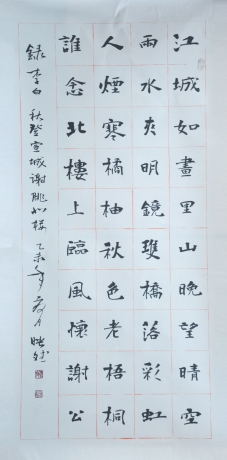 江城如畫里山晚望晴空
雨水夾明鏡雙橋落彩虹
人煙寒橘柚秋色老梧桐
誰念北樓上臨風懷謝公
錄李白秋登宣城謝朓北樓乙未年